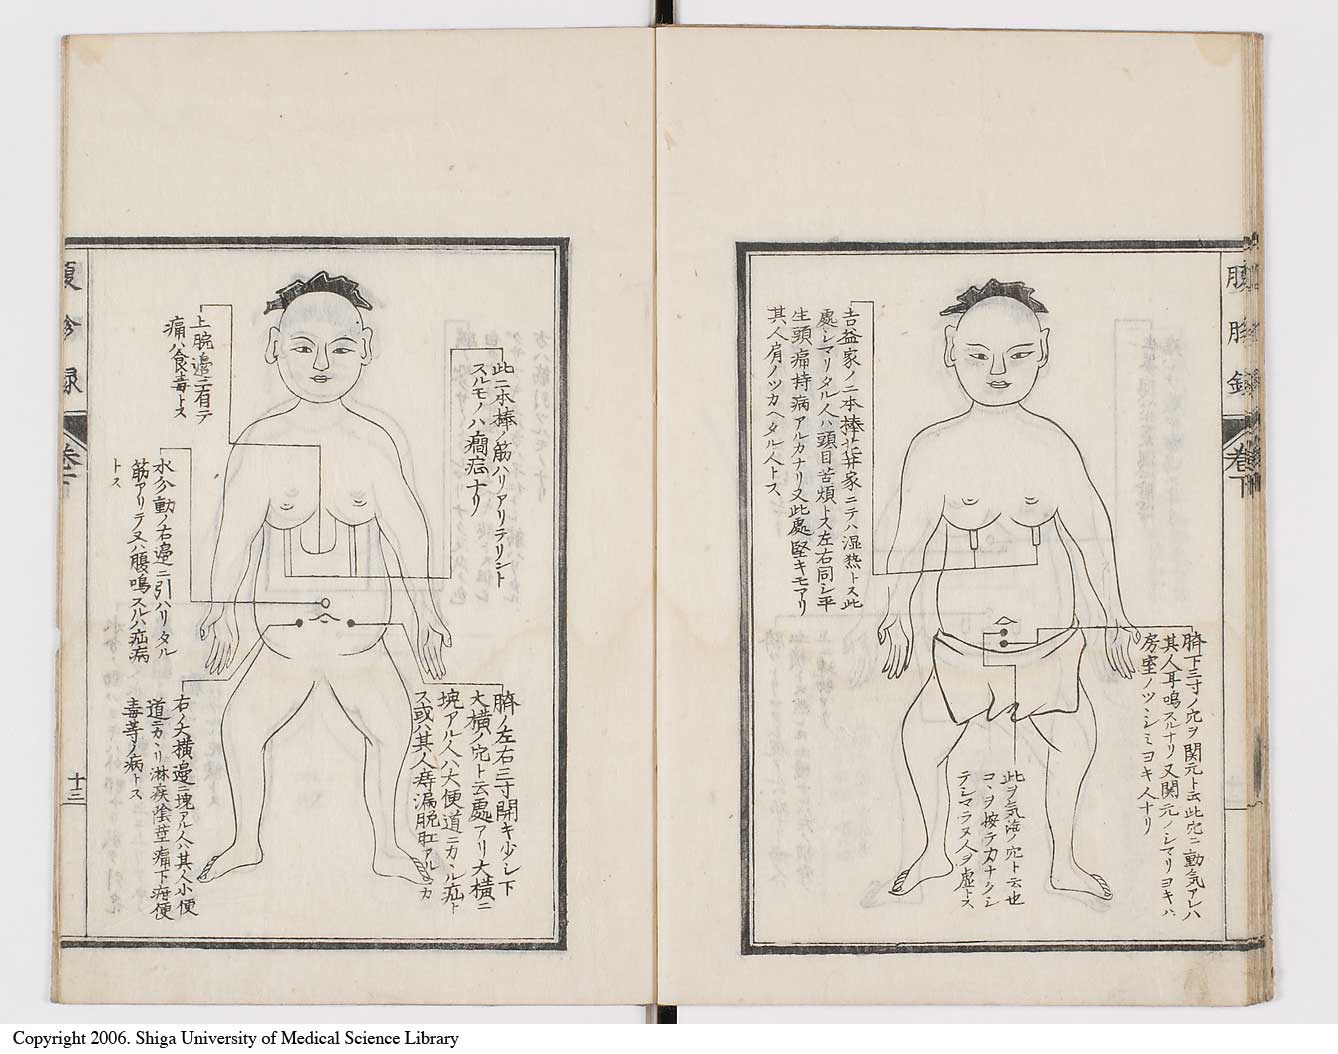 吉益家ノ二本棒荘井家ニテハ湿热トス此
處シマリタル人ハ頭目苦煩トス左右同シ平
生頭痛持病アルカナリ又此處堅キモアリ
其人肩ノツカヘタル人トス
臍下三寸ノ穴ヲ関元ト云此穴ニ動気アレハ
其人耳鳴スルナリ又関元ノシマリヨキハ
房室ノツヽシミヨキ人ナリ
此ヲ気海ノ穴ト云也
コヽヲ按テ力ナクシ
テシマラヌ人ヲ虚トス
腹
卷下
此二本棒ノ筋ハリアリテリント
スルモノハ癇症ナリ
上脘邊ニ有テ
痛ハ食毒トス
水分動ノ右邉ニ引ハリタル
筋アリテ又ハ腹鳴スルハ疝病
トス
臍ノ左右三寸開キ少シ下
大横ノ穴ト云處アリ大横ニ
塊アル人ハ大便道ニカヽル疝ト
ス或ハ其人痔漏脱肛アルカ
右ノ大横邉ニ塊アル人ハ其人小便
道ニカヽリ淋疾陰莖痛下疳便
毒等ノ病トス
腹診録
卷下
十三
Copyright 2006. Shiga University of Medical Science Library